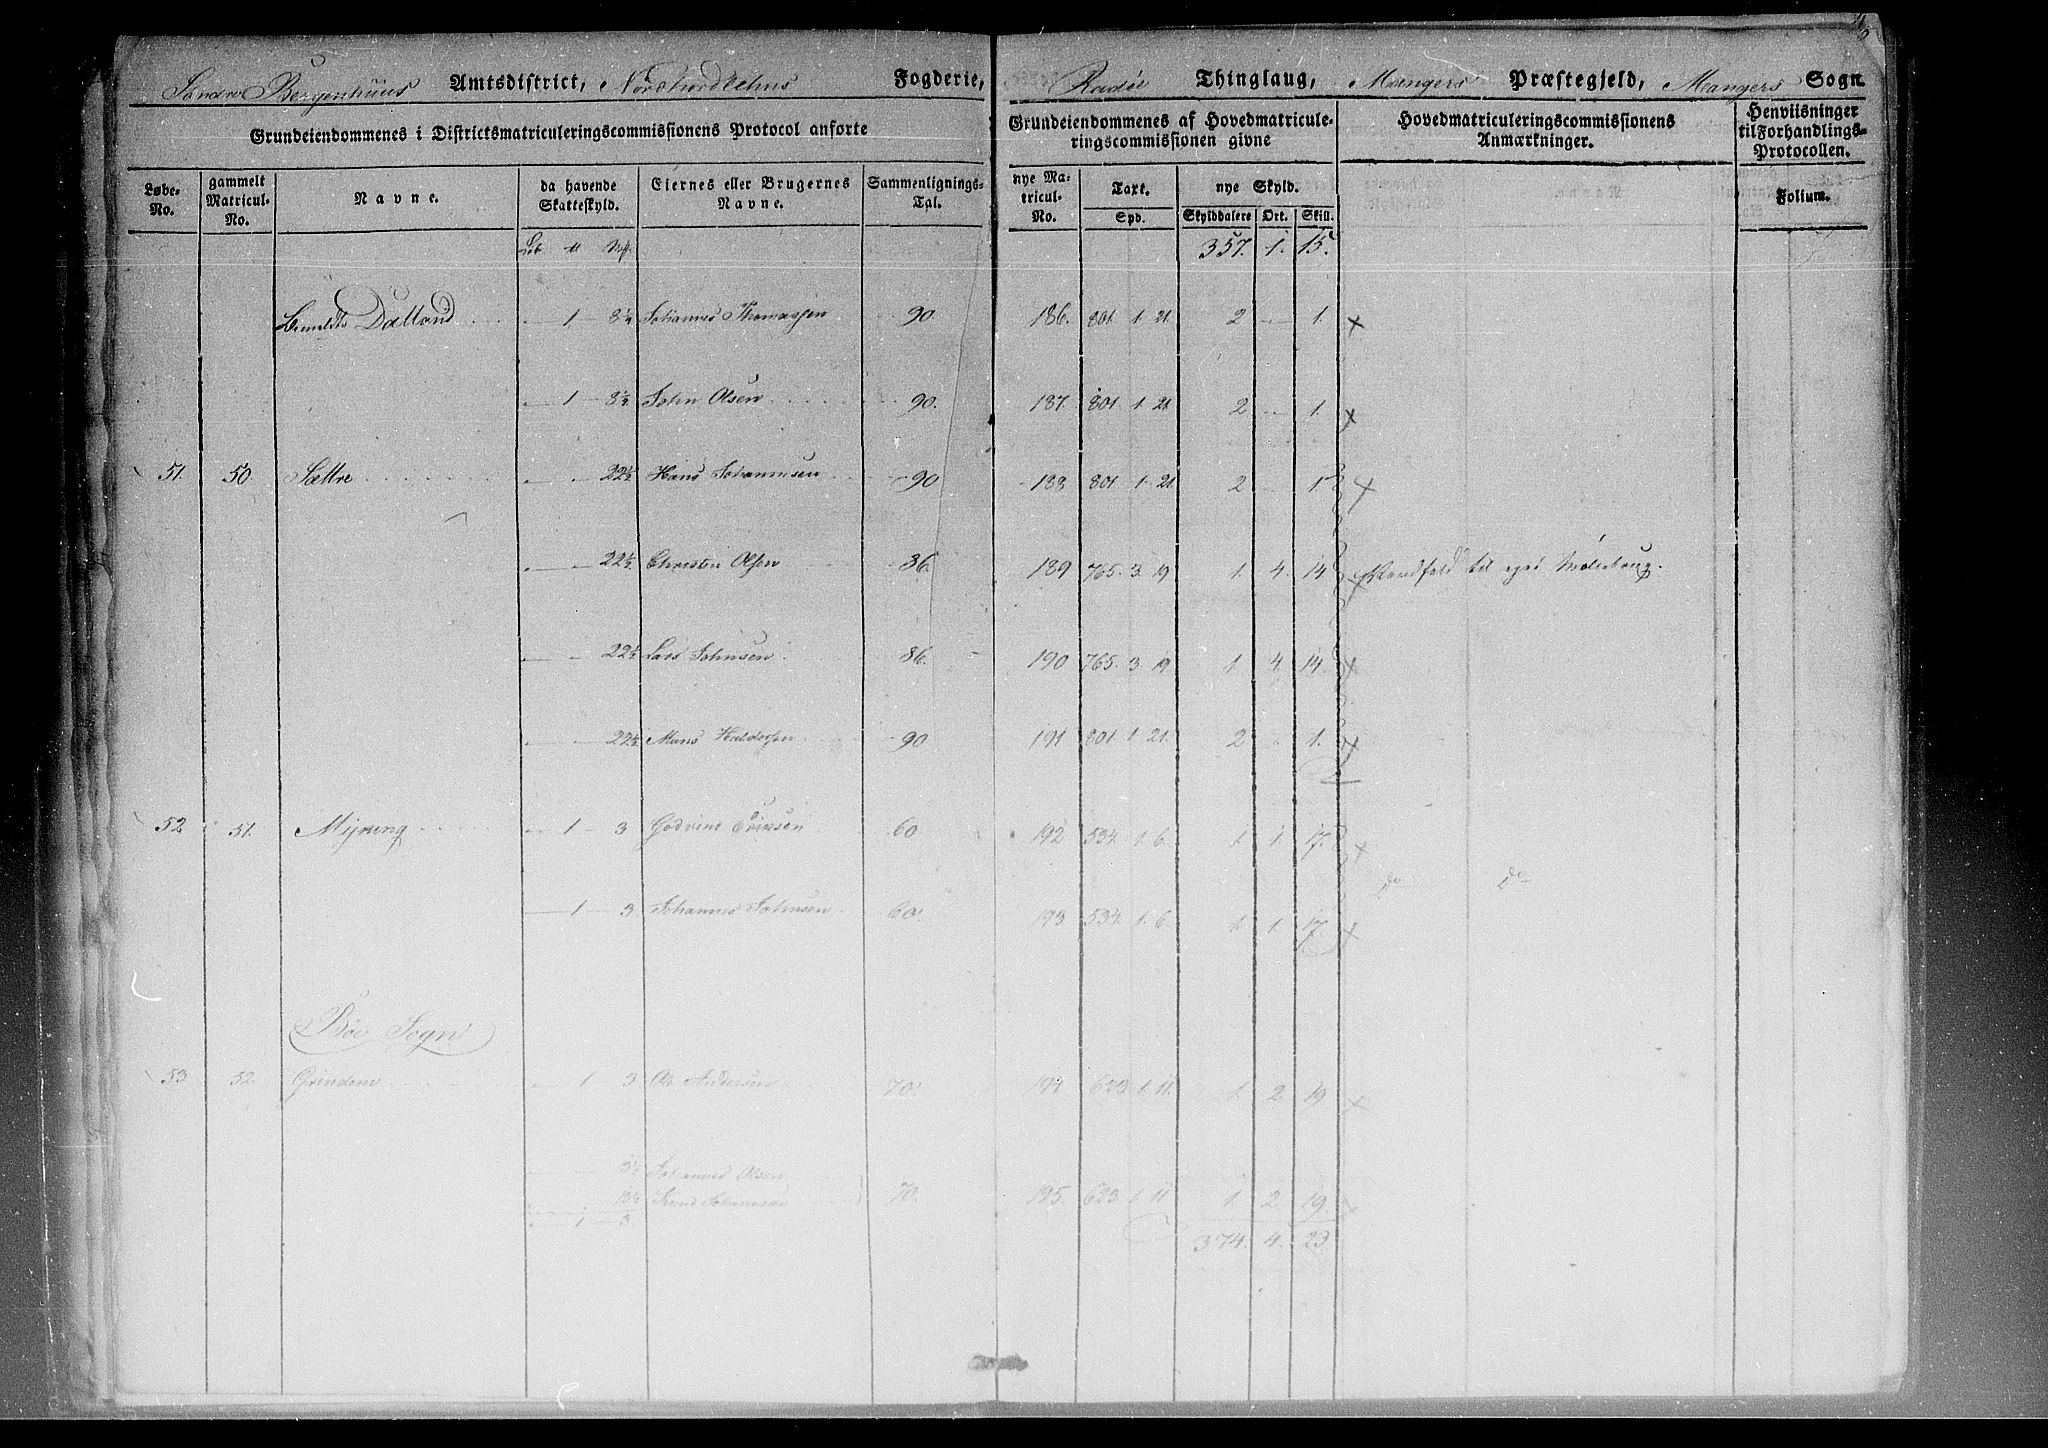 Søndre Bergenhuus Amtsdistrict, Nordhordlehns Fogderie, Radøe Thinglaug, Mangers Præstegjeld, Mangers Sogn
Grundeiendommenes i Districtsmatriculeringscommissionens Protocol anførte
Grundeiendommenes af Hovedmatriculeringscommissionen givne
Hovedmatriculeringscommissionens Anmærkninger.
Henviisninger til Forhandlings-Protocollen.
Løbe-No. gammelt Matricul-No. Navne. da havende Skatteskyld. Eiernes eller Brugernes Navne. Sammenlignings-Tal. nye Matricul-No. Taxt. Spd. nye Skyld. Skylddalere Ort. Skill. Folium.
357. 1. 15.
Dalland 1 Johannes Thomassen 90. 186. 801. 1. 21. 2 1.
1 John Olsen 90. 187. 801 1. 21. 2 1.
51. 50. Sættre 22½ Hans Johannesen 90 188 801 1. 21. 2 1.
22½ Christen Olsen 86. 189 765. 3. 19 1. 4. 14 til eget
22½ Lars Johnsen 86. 190 765. 3 19 1. 4. 14.
22½ Mons Haldorsen 90 191 801 1. 21. 2 1.
52 51. Myking 1 3 Ericksen 60 192 534. 1. 6. 1. 1. 17.
1 3 Johannes Johnsen 60. 193 534. 1. 6. 1. 1. 17. do do
Bøe Sogn
53 52. Grindem 1 3 Ole Andersen 70. 194 623 1. 11. 1. 2. 19
Johannes Olsen
10½ Johannesen 70. 195. 623 1. 11 1. 2. 19.
1 3.
374. 4. 23